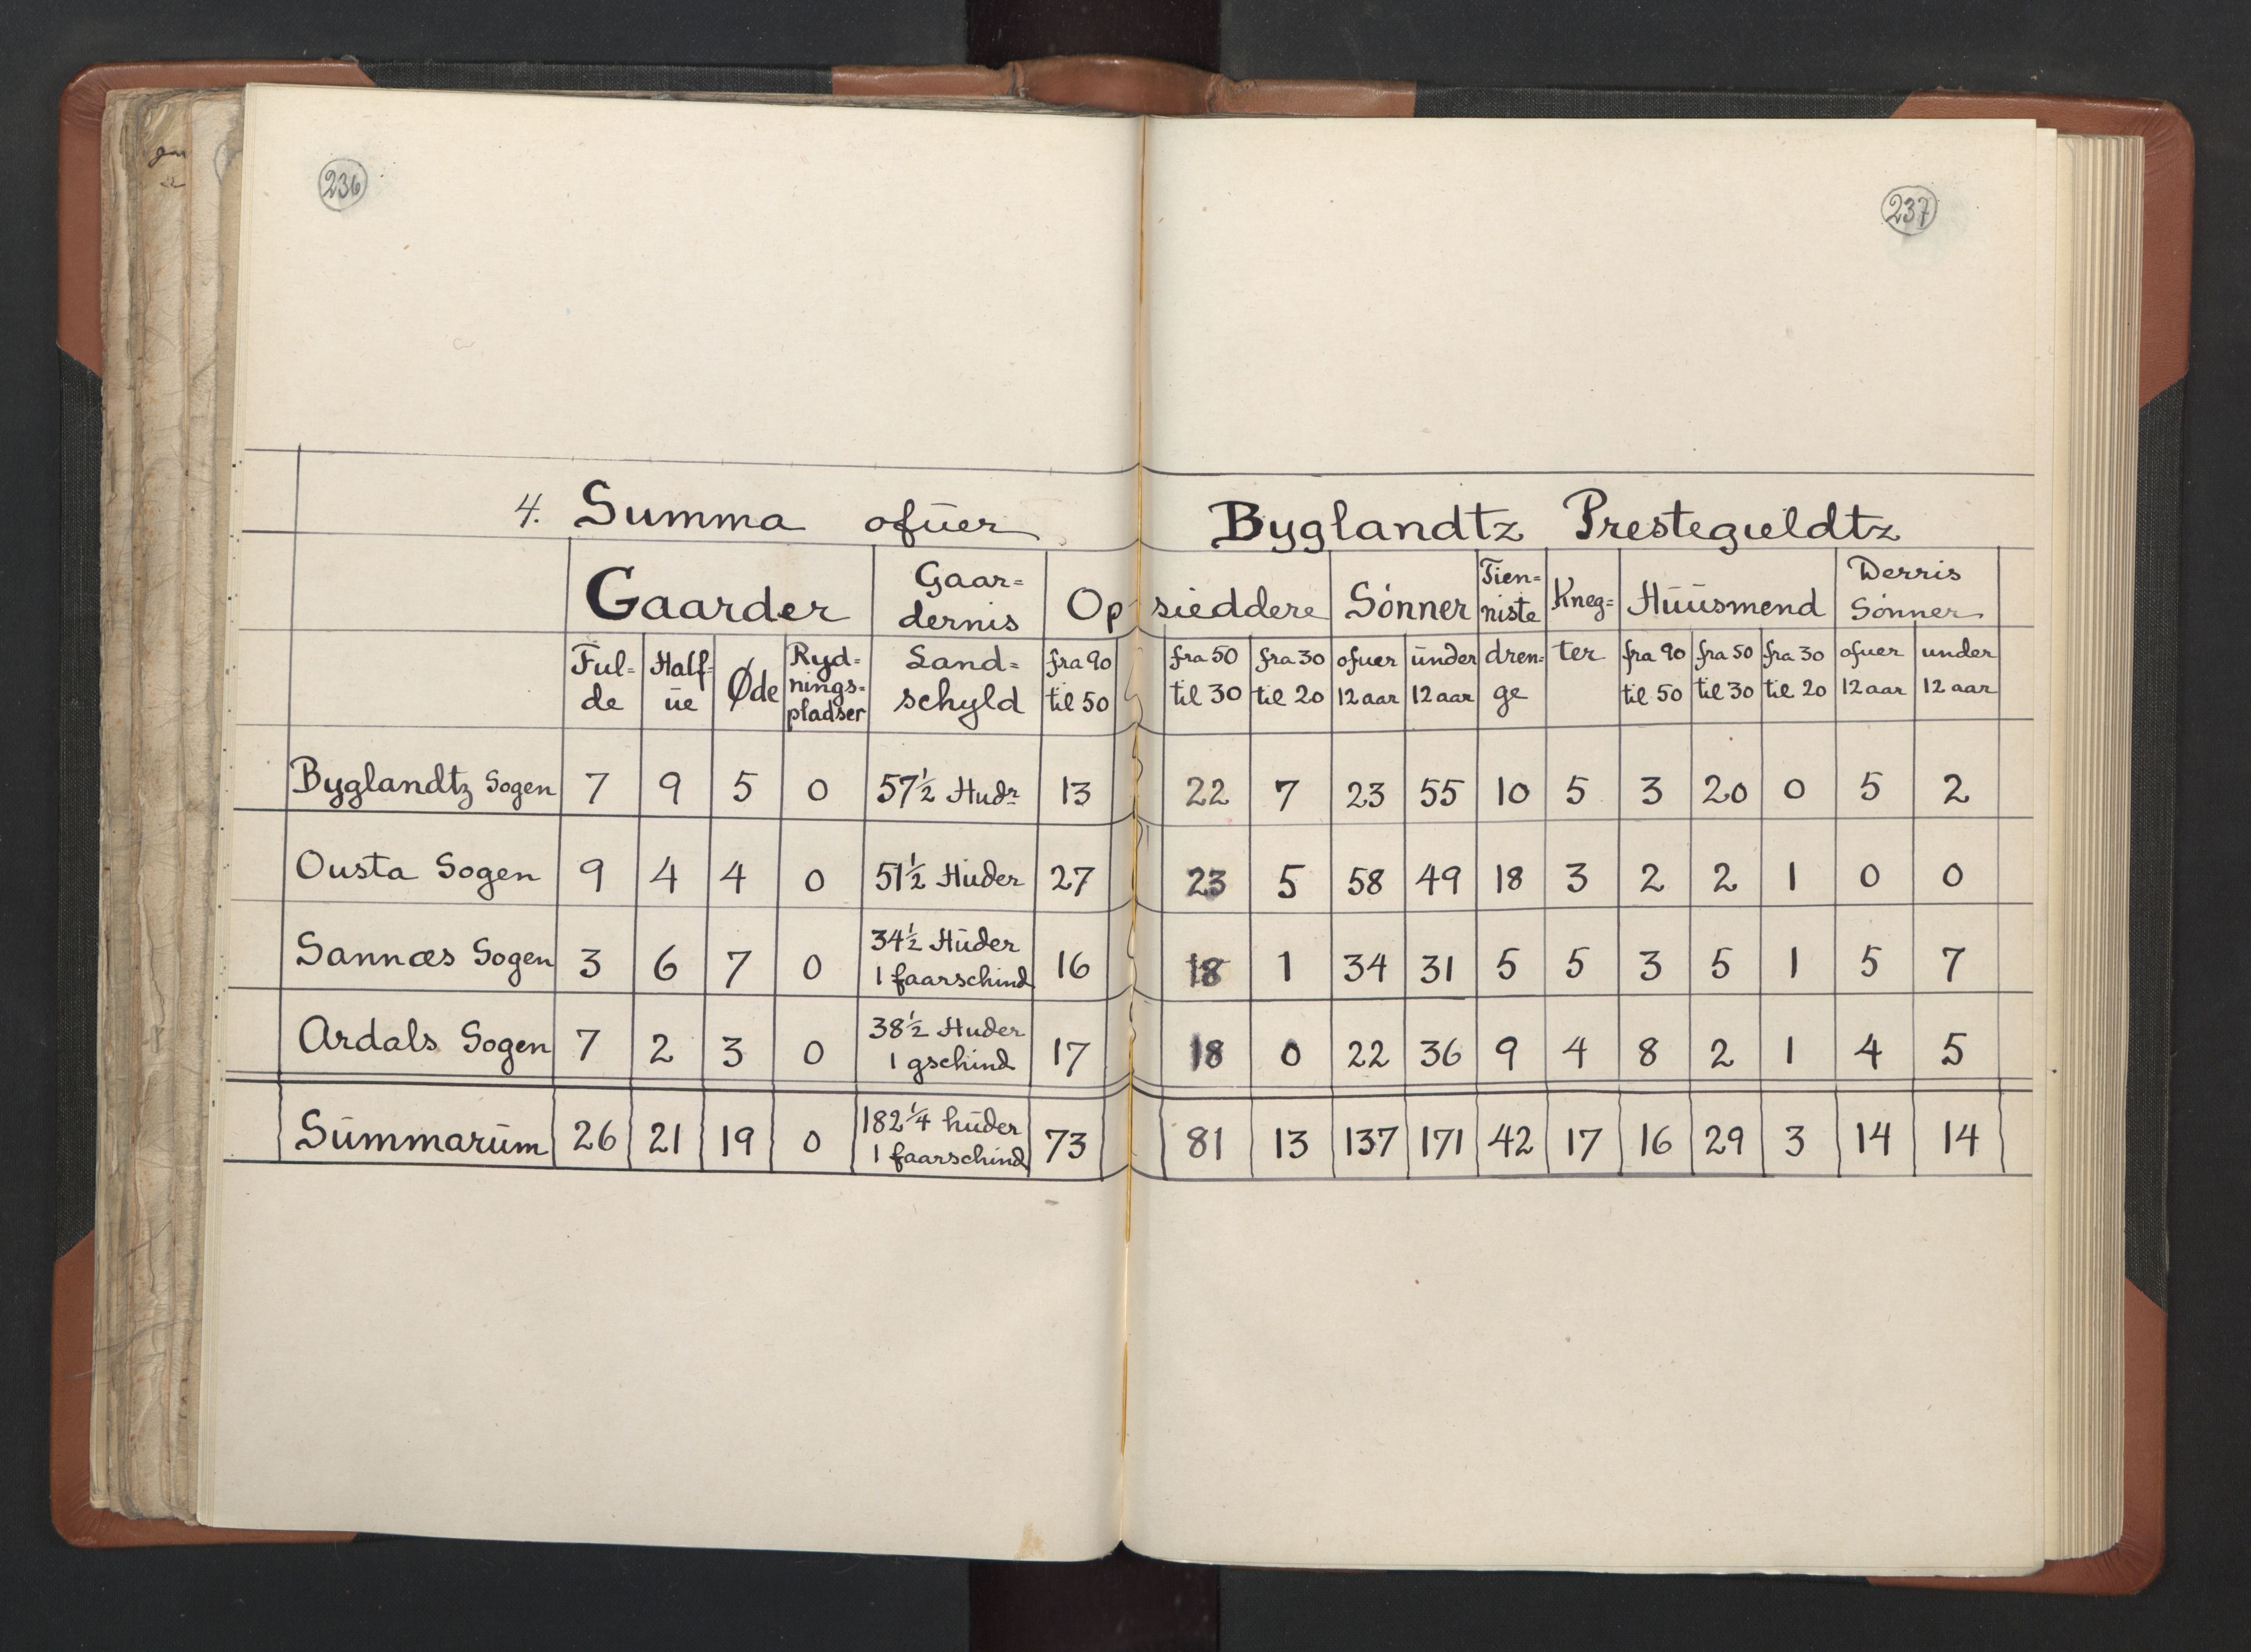 236
237
4. Summa ofüer Byglandtz Prestegieldtz
Gaarder | Gaar=dernis Land=schyld | Opsieddere | Sönner | Tien=niste dren=ge | Kneg=ter | Hüüsmend | Derris Sönner
Ful=de | Half=üe | Øde | Ryd=nings=pladser | fra 90 til 50 | fra 50 til 30 | fra 30 til 20 | ofuer 12 aar | ünder 12 aar | fra 90 til 50 | fra 50 til 30 | fra 30 til 20 | ofuer 12 aar | under 12 aar
Byglandtz Sogen | 7 | 9 | 5 | 0 | 57½ Hudr | 13 | 22 | 7 | 23 | 55 | 10 | 5 | 3 | 20 | 0 | 5 | 2
Ousta Sogen | 9 | 4 | 4 | 0 | 51½ Hüder | 27 | 23 | 5 | 58 | 49 | 18 | 3 | 2 | 2 | 1 | 0 | 0
Sannæs Sogen | 3 | 6 | 7 | 0 | 34½ Hüder 1 faarschind | 16 | 18 | 1 | 34 | 31 | 5 | 5 | 3 | 5 | 1 | 5 | 7
Ardals Sogen | 7 | 2 | 3 | 0 | 38½ Huder 1 gschind | 17 | 18 | 0 | 22 | 36 | 9 | 4 | 8 | 2 | 1 | 4 | 5
Sümmarüm | 26 | 21 | 19 | 0 | 182¼ hüder 1 faarschind | 73 | 81 | 13 | 137 | 171 | 42 | 17 | 16 | 29 | 3 | 14 | 14